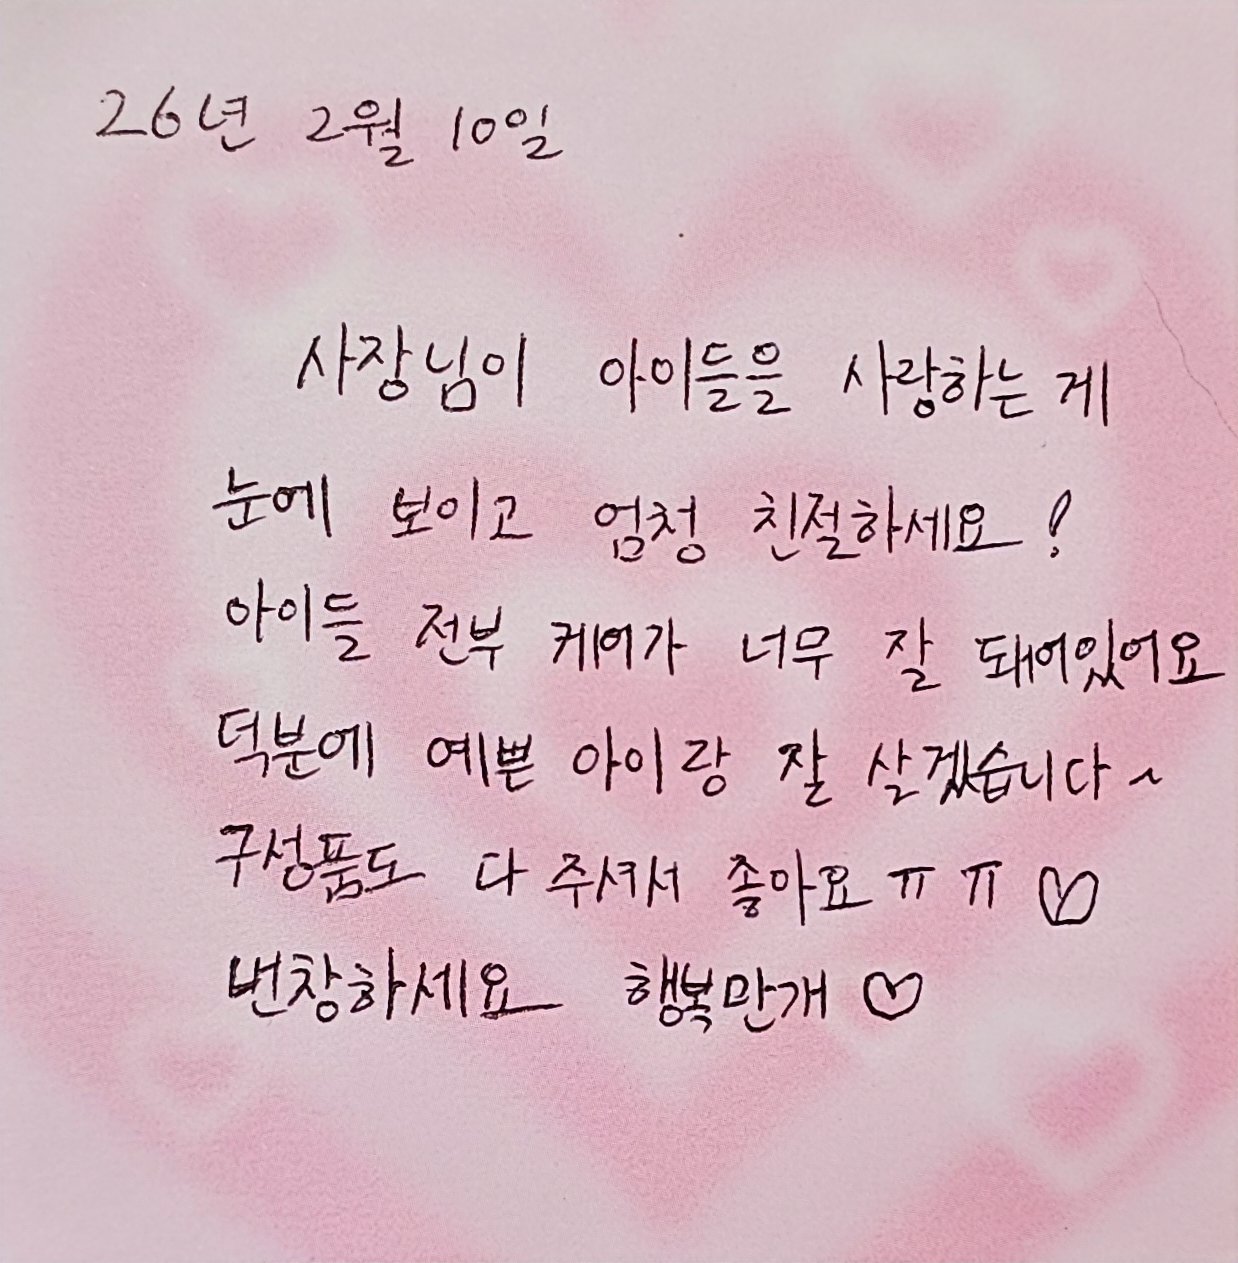 26년 2월 10일
사장님이 아이들을 사랑하는 게
눈에 보이고 엄청 친절하세요!
아이들 전부 케어가 너무 잘 돼어있어요
덕분에 예쁜 아이랑 잘 살겠습니다~
구성품도 다 주셔서 좋아요ㅠㅠ♡
번창하세요 행복만개♡